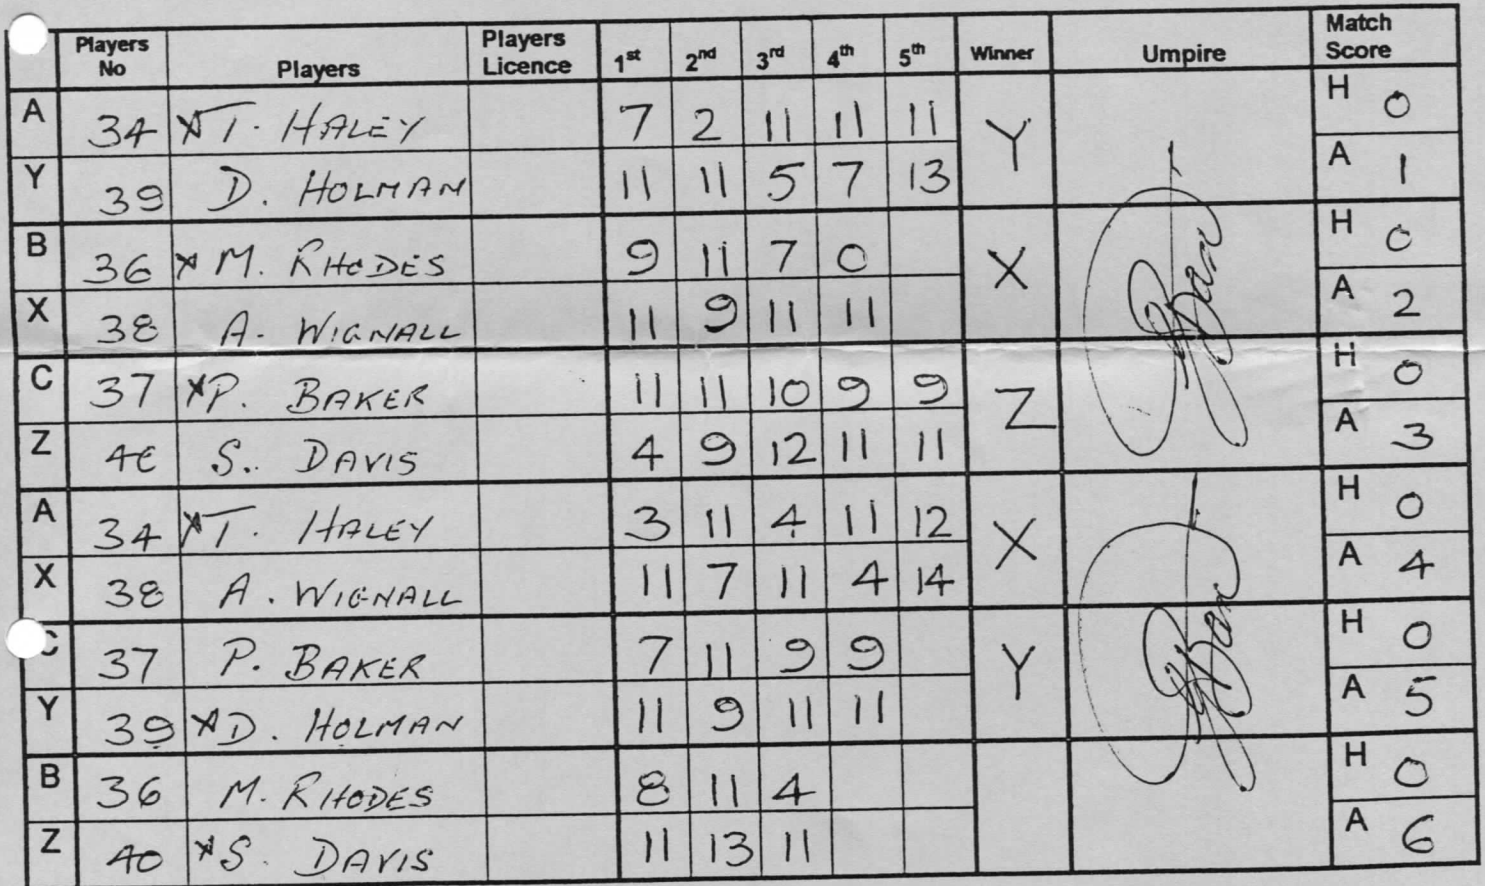 Players No Players Players Licence 1st 2nd 3rd 4th 5th Winner Umpire Match Score
A 34 x T. HALEY 7 2 11 11 11 Y H 0
Y 39 D. HOLMAN 11 11 5 7 13 A 1
B 36 x M. RHODES 9 11 7 0 X H 0
X 38 A. WIGNALL 11 9 11 11 A 2
C 37 x P. BAKER 11 11 10 9 9 Z H 0
Z 40 S. DAVIS 4 9 12 11 11 A 3
A 34 x T. HALEY 3 11 4 11 12 X H 0
X 38 A. WIGNALL 11 7 11 4 14 A 4
C 37 P. BAKER 7 11 9 9 Y H 0
Y 39 x D. HOLMAN 11 9 11 11 A 5
B 36 M. RHODES 8 11 4 H 0
Z 40 x S. DAVIS 11 13 11 A 6